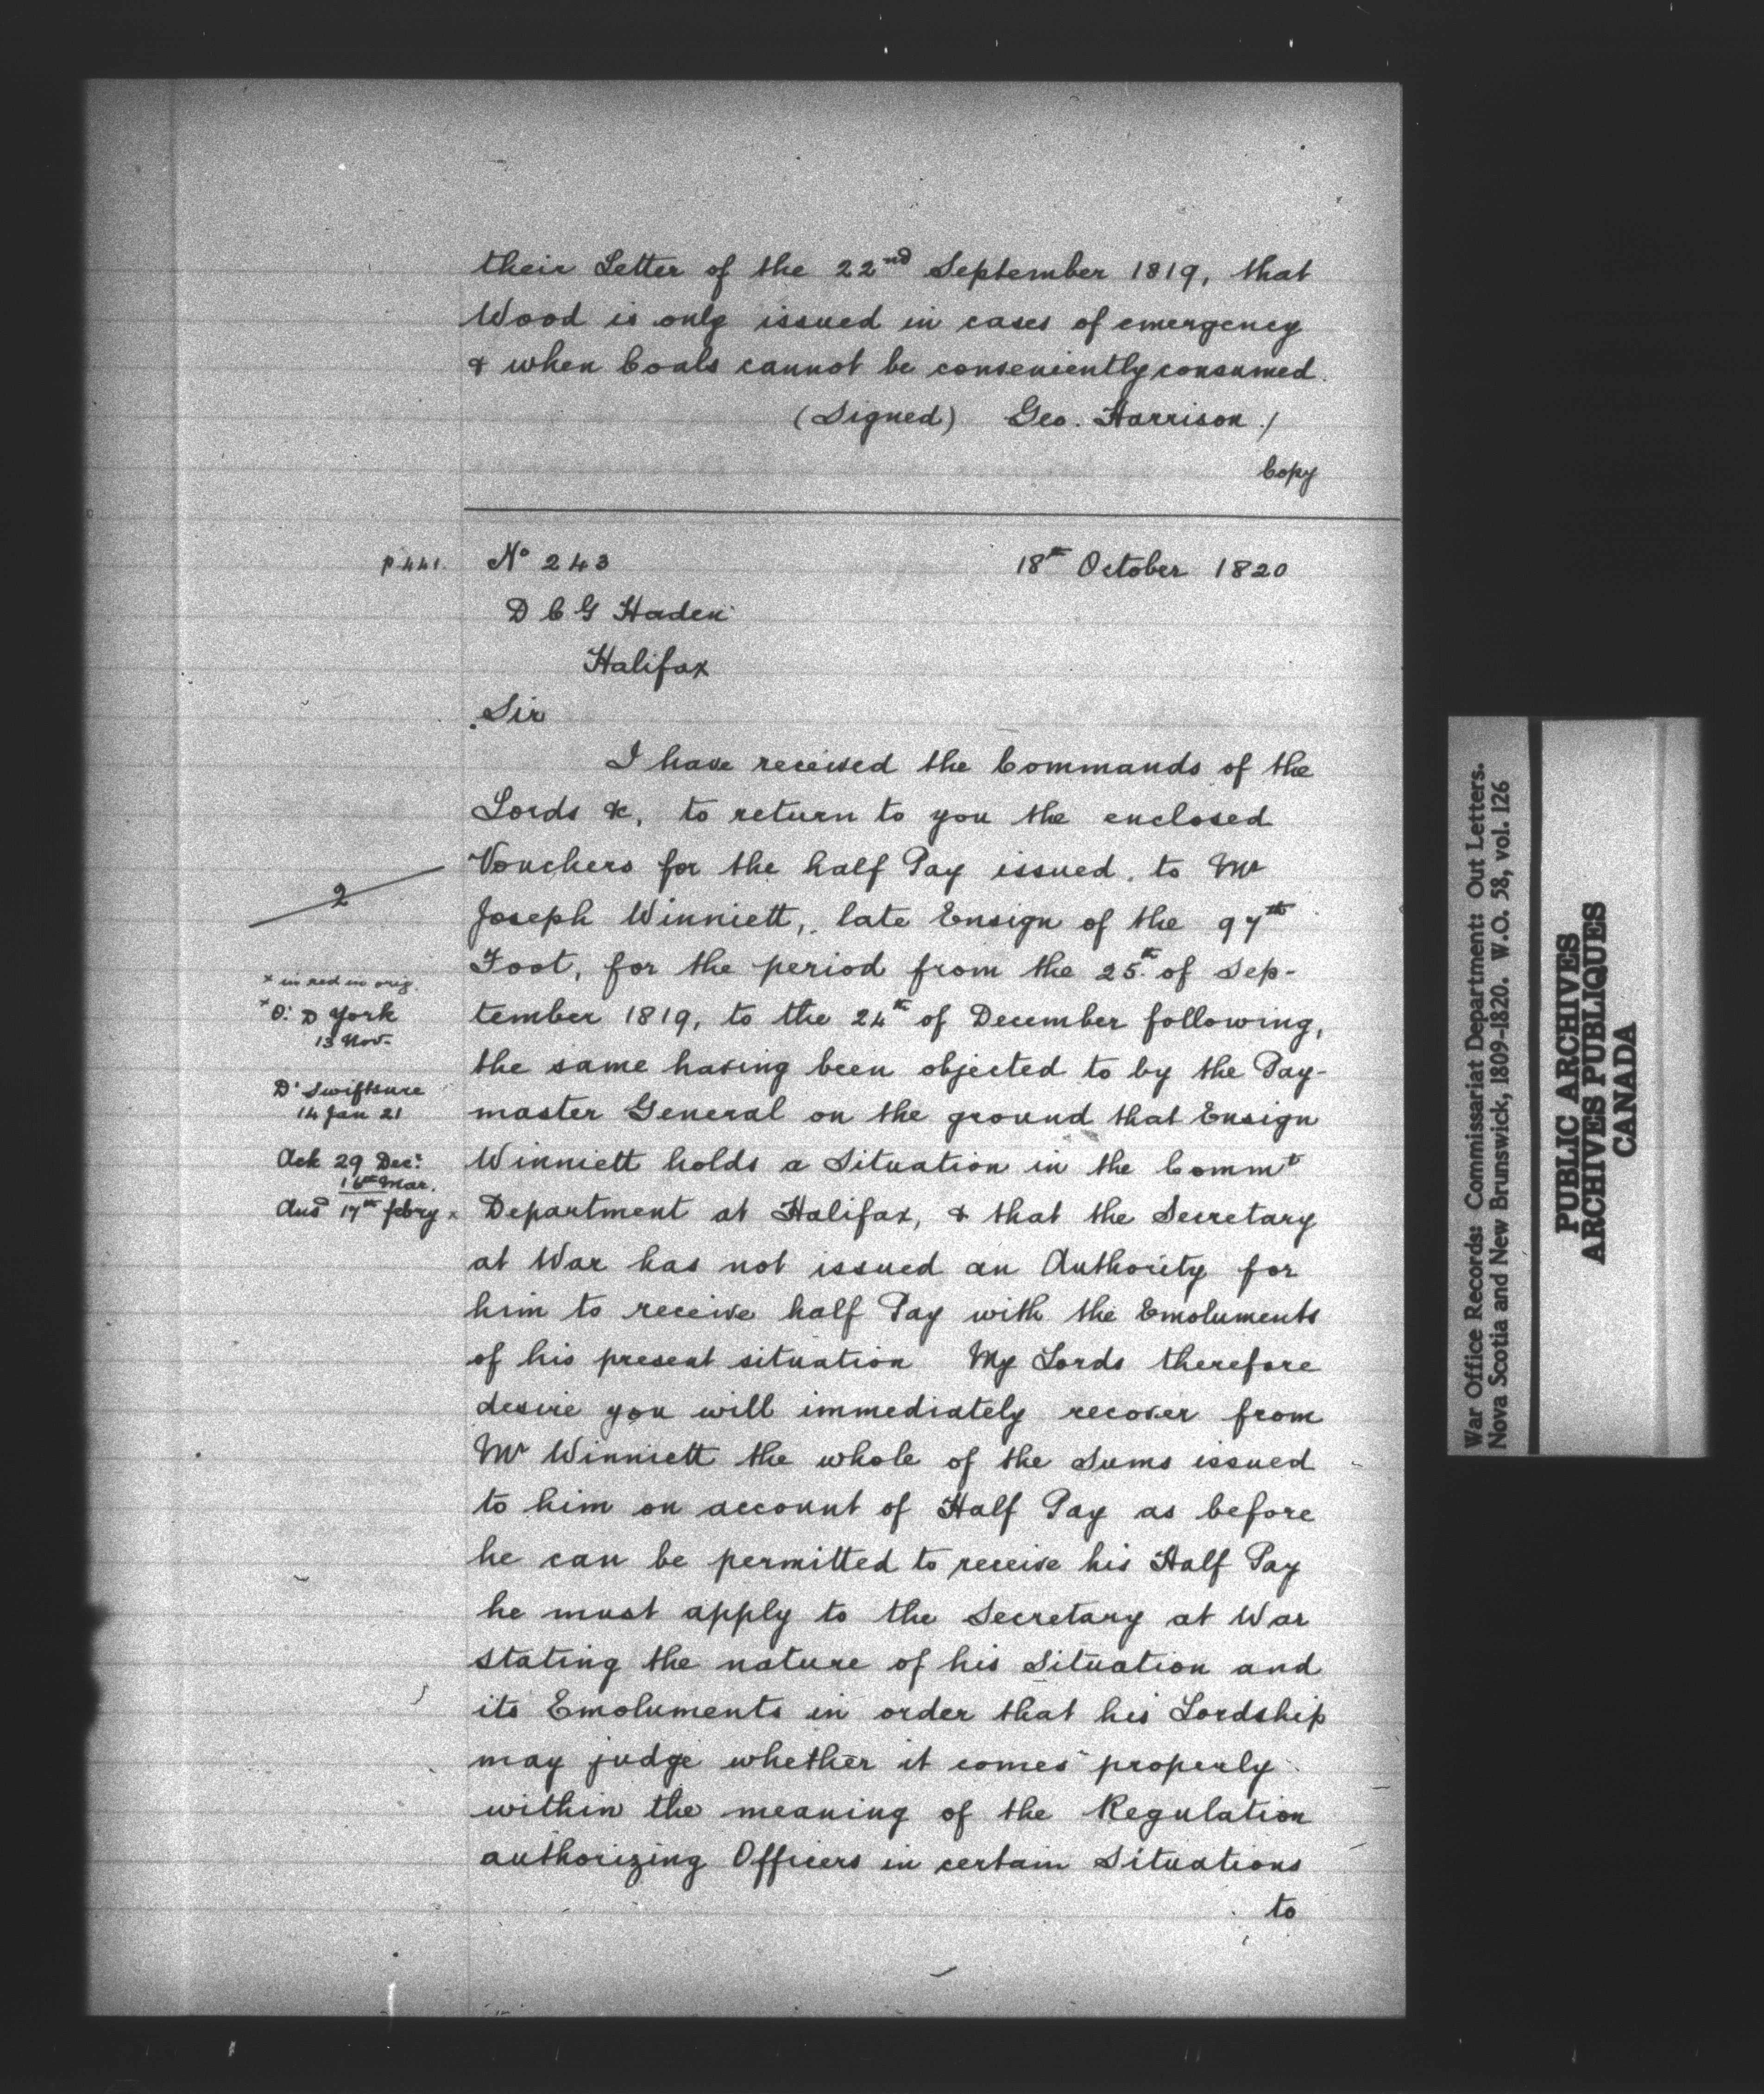 their Letter of the 22nd September 1819, that
Wood is only issued in cases of emergency
& when Coals cannot be conveniently consumed.
(Signed) Geo. Harrison /
Copy
p 441. No 243 18th October 1820
D C G Haden
Halifax
Sir
I have received the Commands of the
Lords &c, to return to you the enclosed
Vouchers for the half Pay issued, to Mr
2
Joseph Winniett, late Ensign of the 97th
Foot, for the period from the 25th of Sep-
x in red in orig.
x O: D York
13 Nov.
tember 1819, to the 24th of December following,
the same having been objected to by the Pay-
D: Swiftsure
14 Jan 21
master General on the ground that Ensign
Ack 29 Dec:
16th Mar.
Winniett holds a Situation in the Commt
Ansd 17th febry x
Department at Halifax, & that the Secretary
at War has not issued an Authority for
him to receive half Pay with the Emoluments
of his present situation My Lords therefore
desire you will immediately recover from
Mr Winniett the whole of the Sums issued
to him on account of Half Pay as before
he can be permitted to receive his Half Pay
he must apply to the Secretary at War
stating the nature of his Situation and
its Emoluments in order that his Lordship
may judge whether it comes properly
within the meaning of the Regulation
authorizing Officers in certain Situations
to
War Office Records: Commissariat Department: Out Letters.
Nova Scotia and New Brunswick, 1809-1820. W.O. 58, vol. 126
PUBLIC ARCHIVES
ARCHIVES PUBLIQUES
CANADA